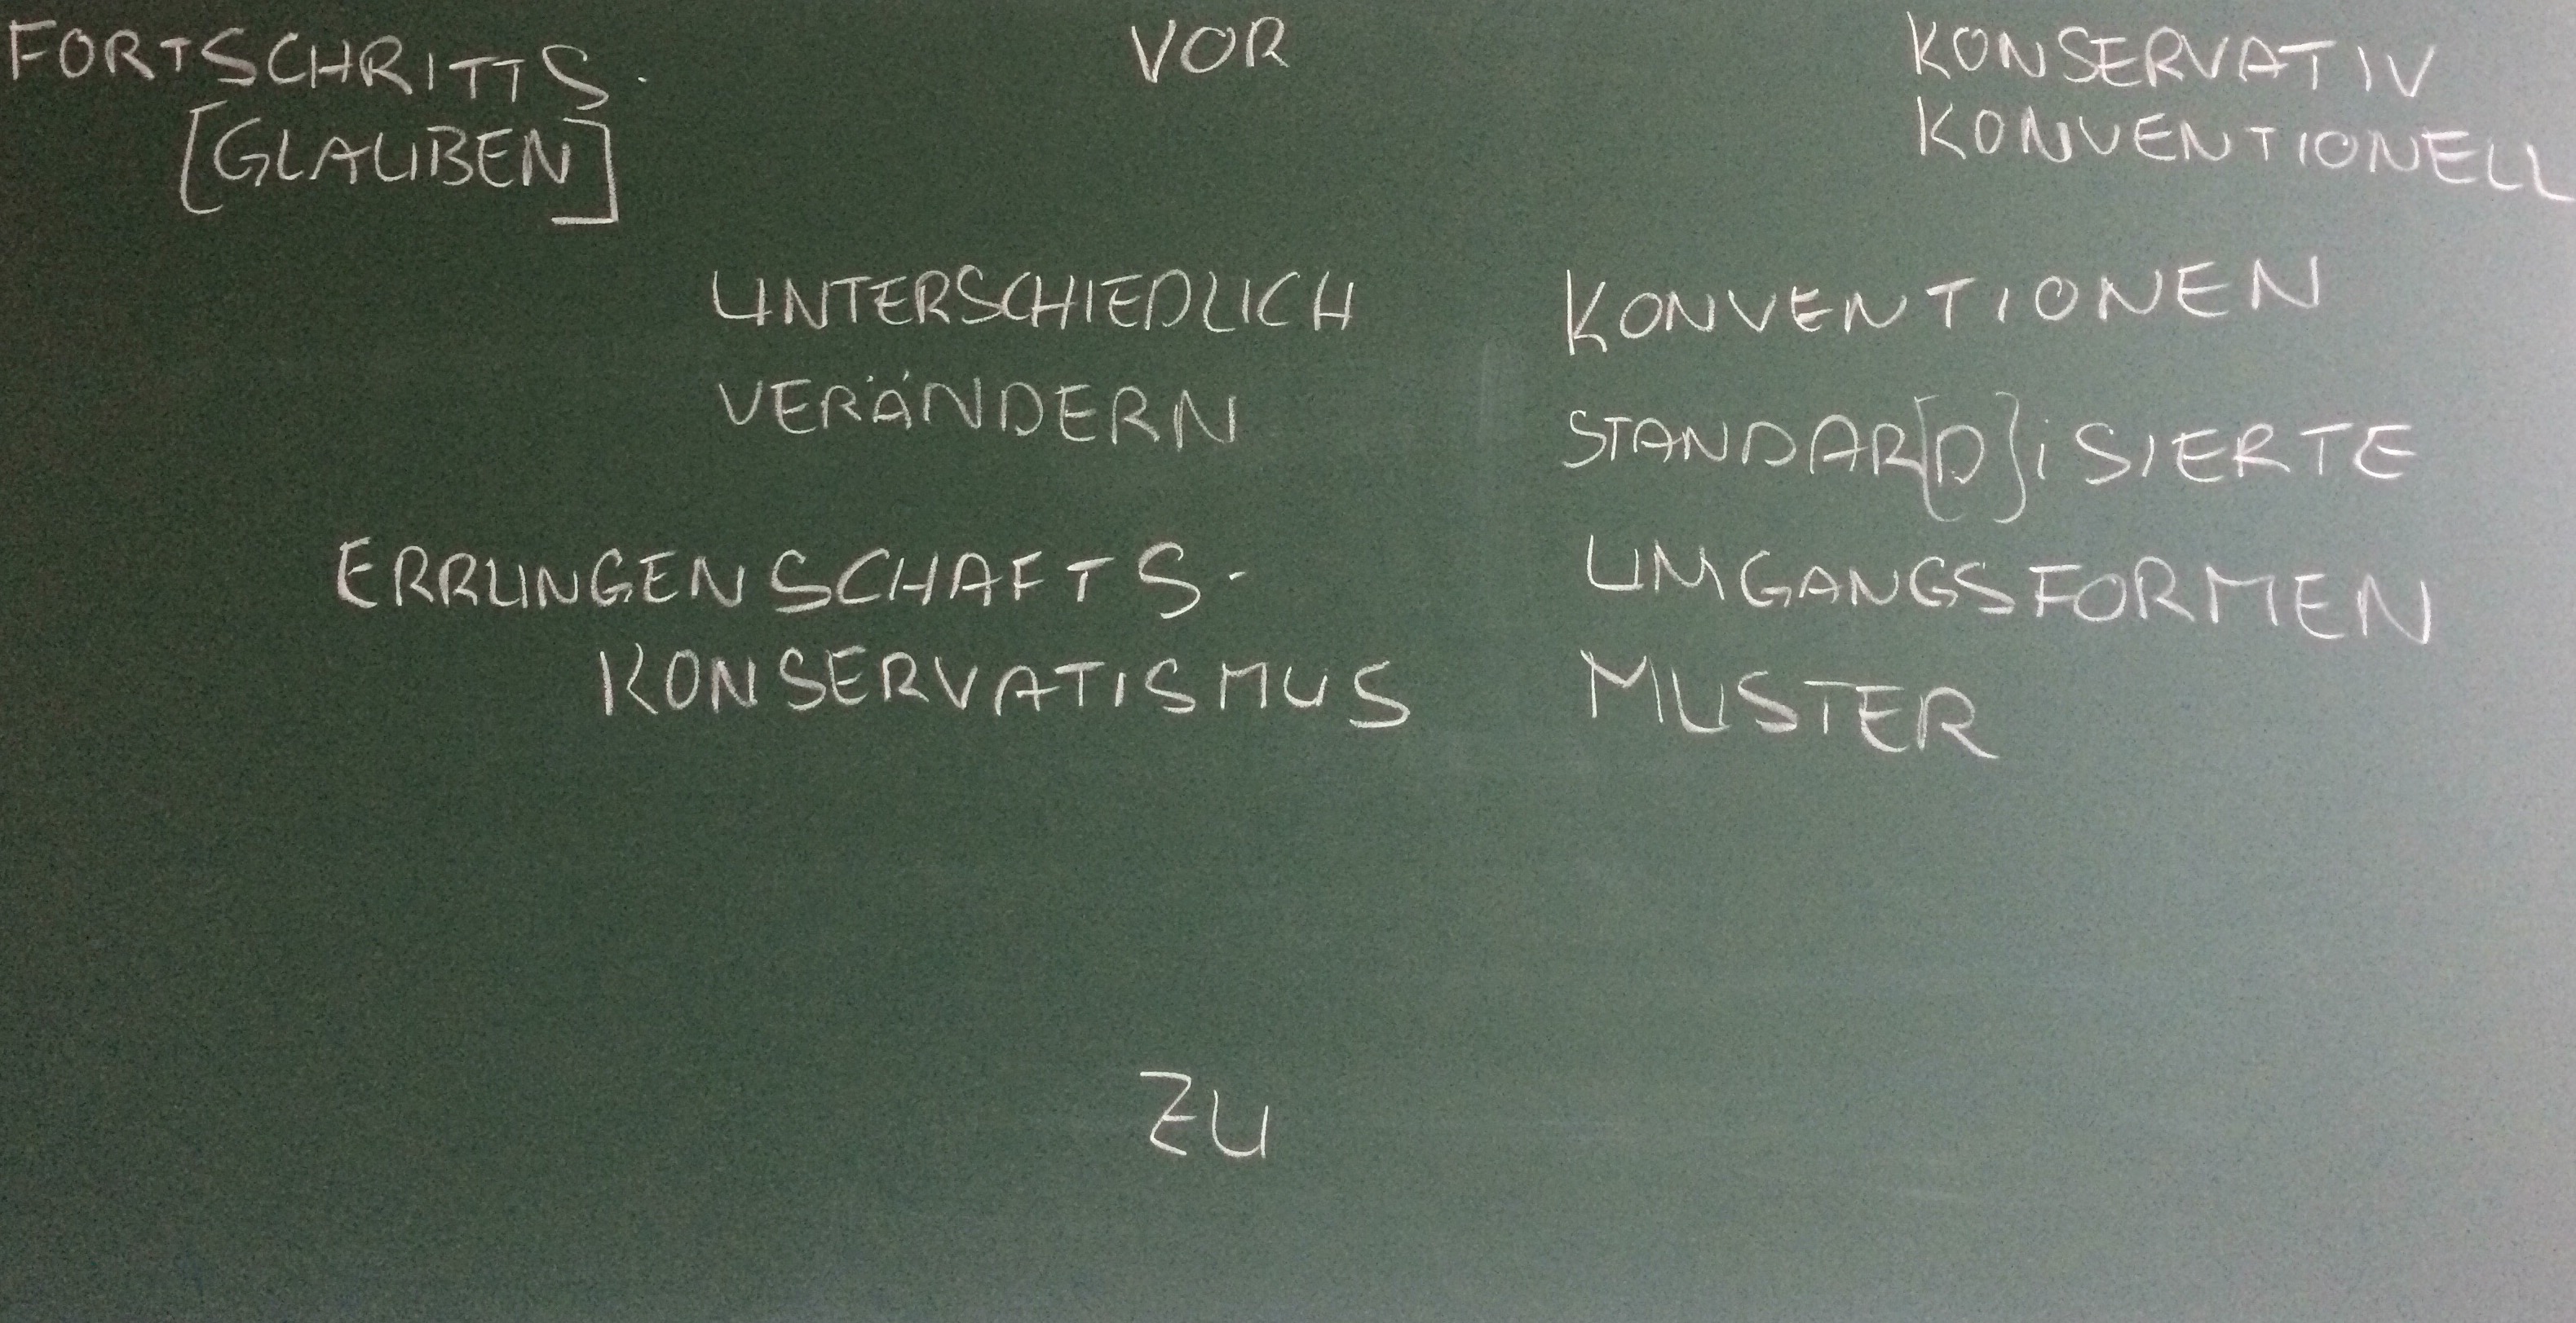 FORTSCHRITTS-
[GLAUBEN]
VOR
KONSERVATIV
KONVENTIONELL
UNTERSCHIEDLICH
VERÄNDERN
KONVENTIONEN
STANDAR[D]iSIERTE
UMGANGSFORMEN
MUSTER
ERRUNGENSCHAFTS-
KONSERVATISMUS
ZU